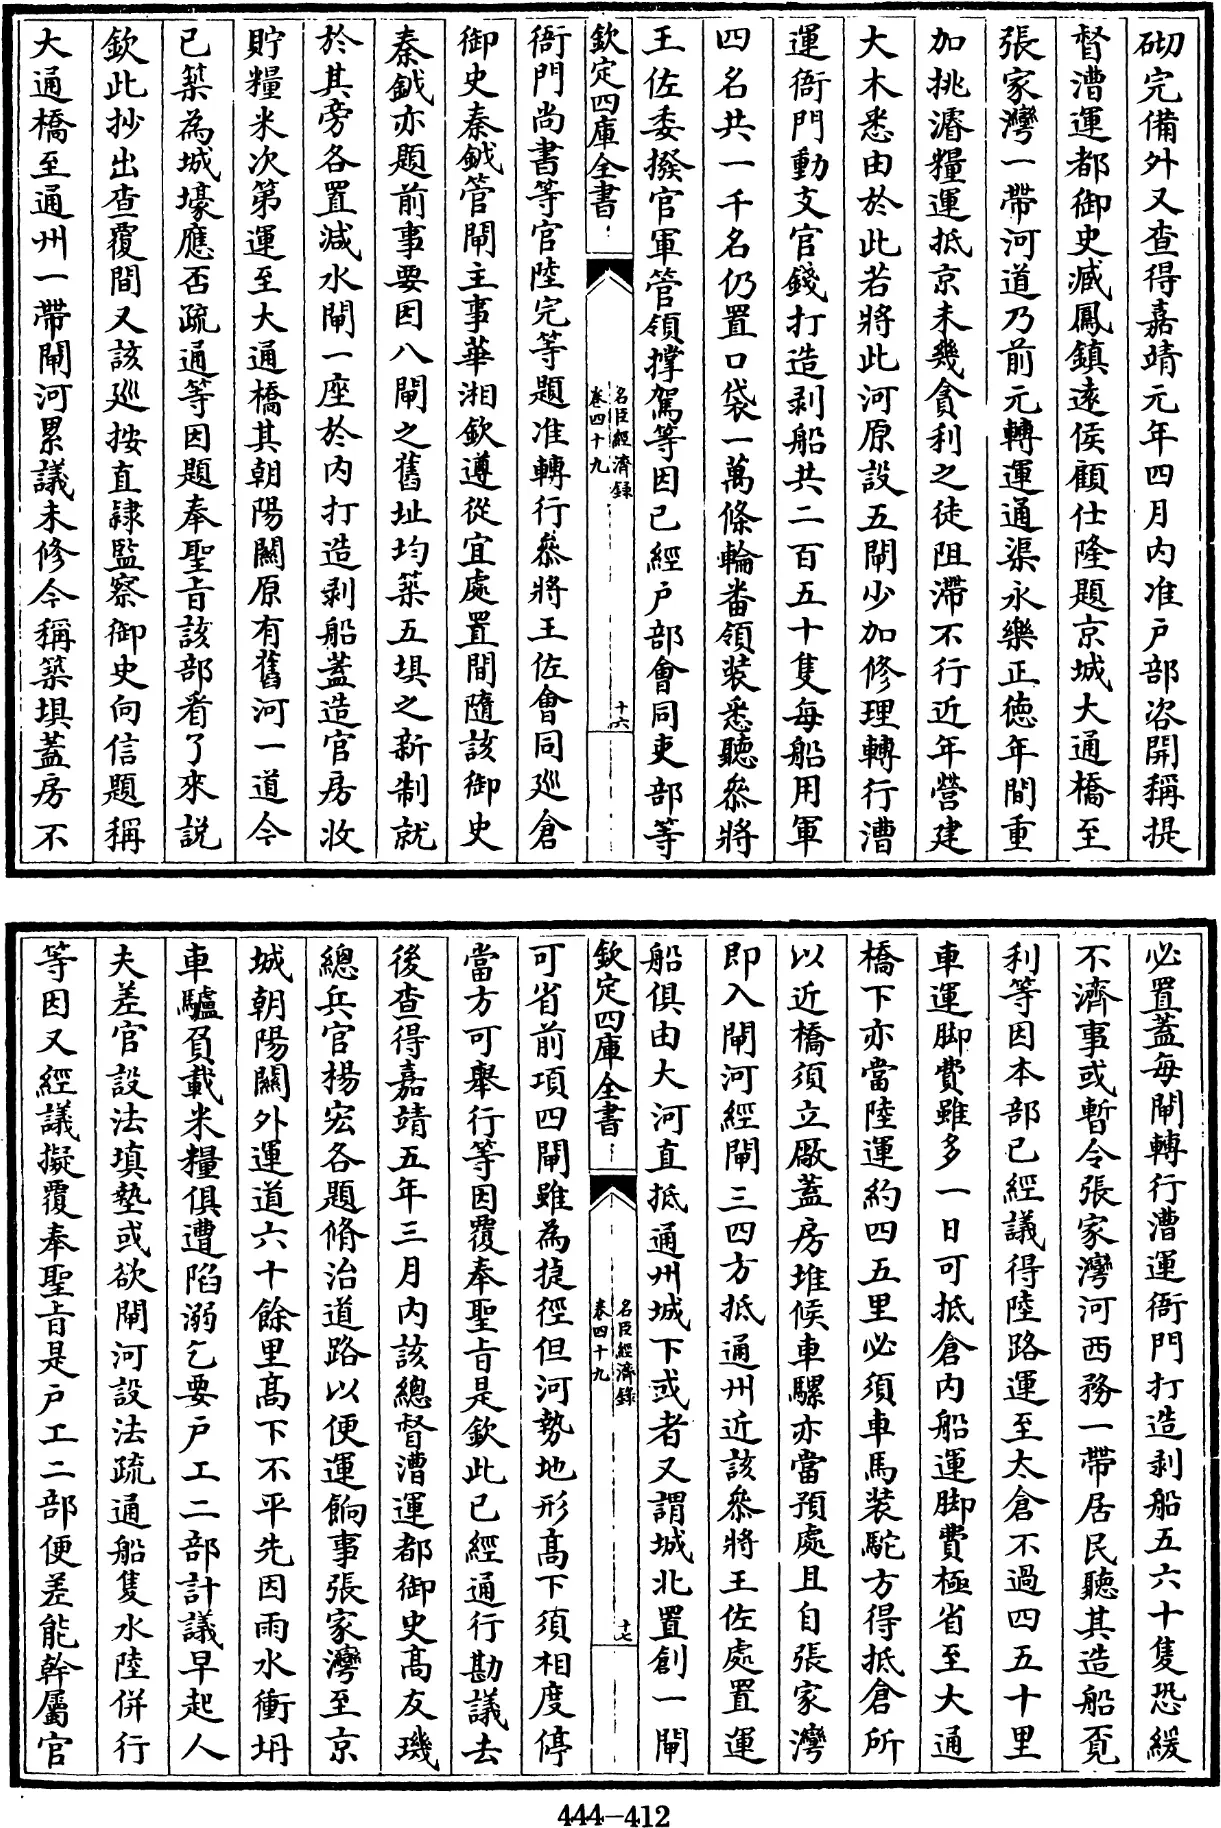 砌完備外又查得嘉靖元年四月内准户部咨開稱提
督漕運都御史臧鳳鎮遠侯顧仕隆題京城大通橋至
張家灣一帶河道乃前元轉運通渠永樂正徳年間重
加挑濬糧運抵京未幾貪利之徒阻滯不行近年營建
大木悉由於此若將此河原設五閘少加修理轉行漕
運衙門動支官錢打造剥船共二百五十隻每船用軍
四名共一千名仍置口袋一萬條輪番領装悉聽叅將
王佐委撥官軍管領撑駕等因已經户部會同吏部等
欽定四庫全書
名臣經濟録
卷四十九
十六
衙門尚書等官陸完等題准轉行叅將王佐會同廵倉
御史秦鉞管閘主事華湘欽遵從宜處置間隨該御史
秦鉞亦題前事要因八閘之舊址均築五埧之新制就
於其旁各置減水閘一座於内打造剥船蓋造官房收
貯糧米次第運至大通橋其朝陽關原有舊河一道今
已築為城壕應否疏通等因題奉聖旨該部看了來説
欽此抄出查覆間又該廵按直隷監察御史向信題稱
大通橋至通州一帶閘河累議未修今稱築埧蓋房不
必置蓋每閘轉行漕運衙門打造剥船五六十隻恐緩
不濟事或暫令張家灣河西務一帶居民聽其造船覔
利等因本部已經議得陸路運至太倉不過四五十里
車運脚費雖多一日可抵倉内船運脚費極省至大通
橋下亦當陸運約四五里必須車馬装駝方得抵倉所
以近橋須立厰蓋房堆候車騾亦當預處且自張家灣
即入閘河經閘三四方抵通州近該叅將王佐處置運
船俱由大河直抵通州城下或者又謂城北置創一閘
欽定四庫全書
名臣經濟録
卷四十九
十七
可省前項四閘雖為捷徑但河勢地形髙下須相度停
當方可舉行等因覆奉聖旨是欽此已經通行勘議去
後查得嘉靖五年三月内該總督漕運都御史髙友璣
總兵官楊宏各題脩治道路以便運餉事張家灣至京
城朝陽關外運道六十餘里髙下不平先因雨水衝坍
車驢負載米糧俱遭陷溺乞要户工二部計議早起人
夫差官設法填墊或欲閘河設法疏通船隻水陸併行
等因又經議擬覆奉聖旨是户工二部便差能幹屬官
444-412